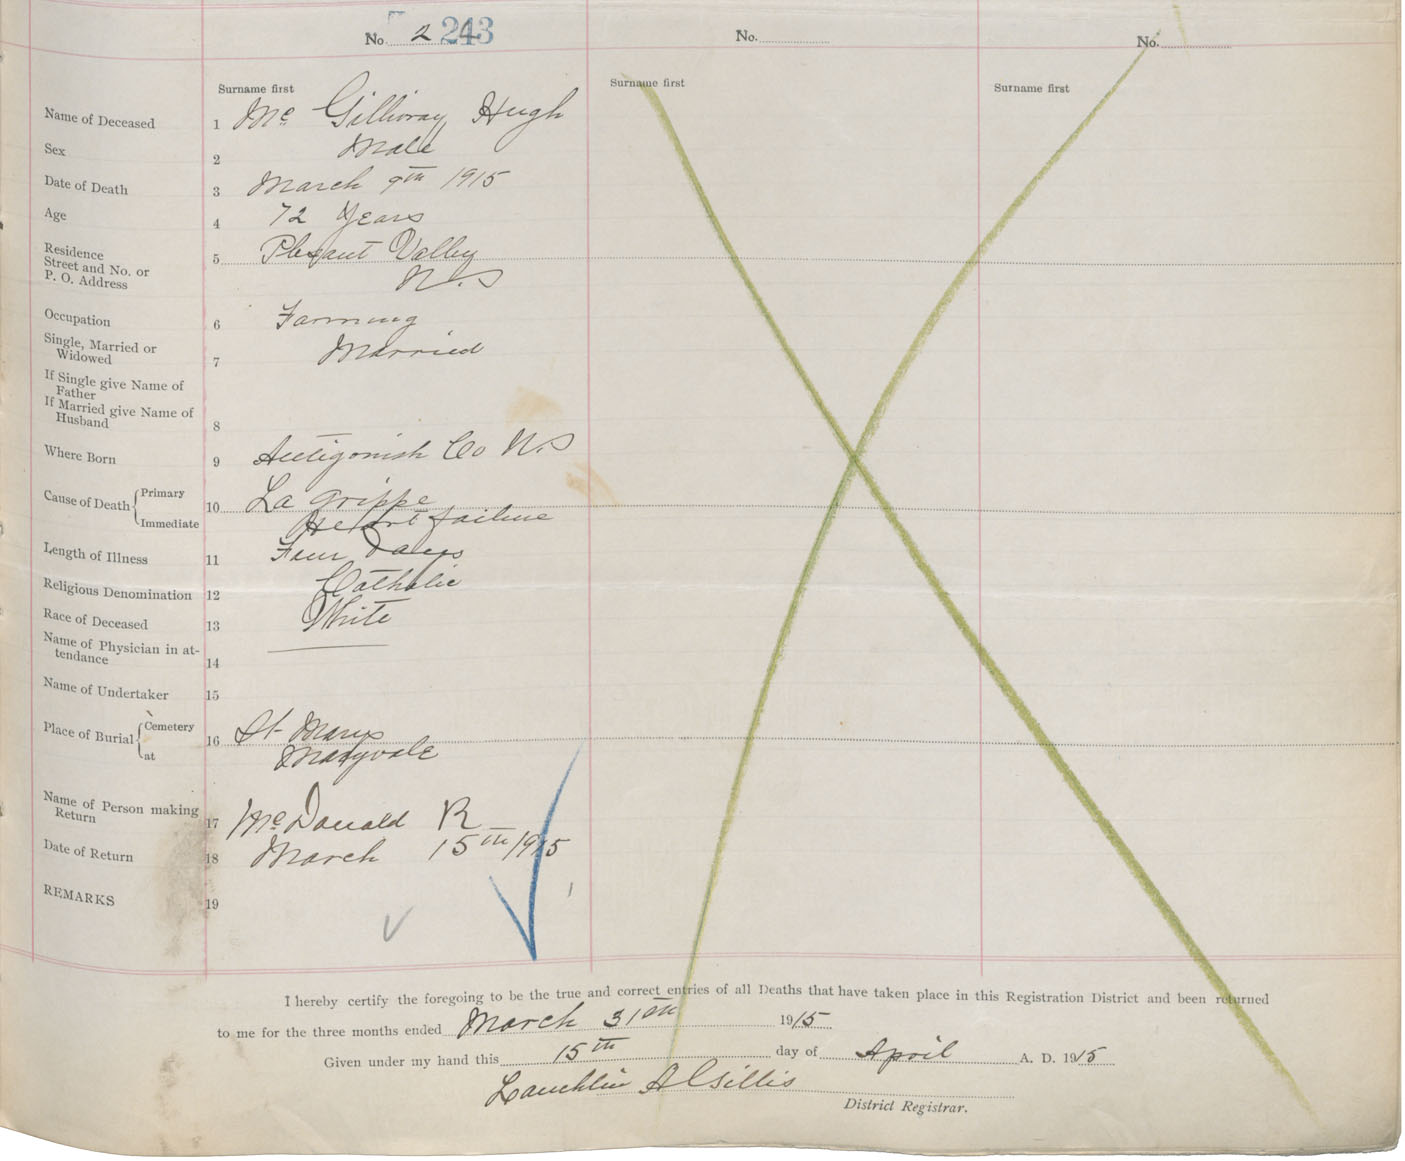 No. 2 243
No.
No.
Surname first
Surname first
Surname first
Name of Deceased 1 Mc Gillivray Hugh
Sex 2 Male
Date of Death 3 March 9th 1915
Age 4 72 Years
Residence
Street and No. or
P. O. Address
5 Plesant Valley
N.S
Occupation 6 Farming
Single, Married or
Widowed
7 Married
If Single give Name of
Father
If Married give Name of
Husband
8
Where Born 9 Antigonish Co N.S
Cause of Death { Primary
Immediate
10 La grippe
Heart failure
Length of Illness 11 Four Days
Religious Denomination 12 Catholic
Race of Deceased 13 White
Name of Physician in at-
tendance
14
Name of Undertaker 15
Place of Burial { Cemetery
at
16 St Marys
Maryvale
Name of Person making
Return
17 McDonald R
Date of Return 18 March 15th/1915
REMARKS 19
I hereby certify the foregoing to be the true and correct entries of all Deaths that have taken place in this Registration District and been returned
to me for the three months ended March 31st 1915
Given under my hand this 15th day of April A. D. 1915
Lauchlin A Gillis
District Registrar.